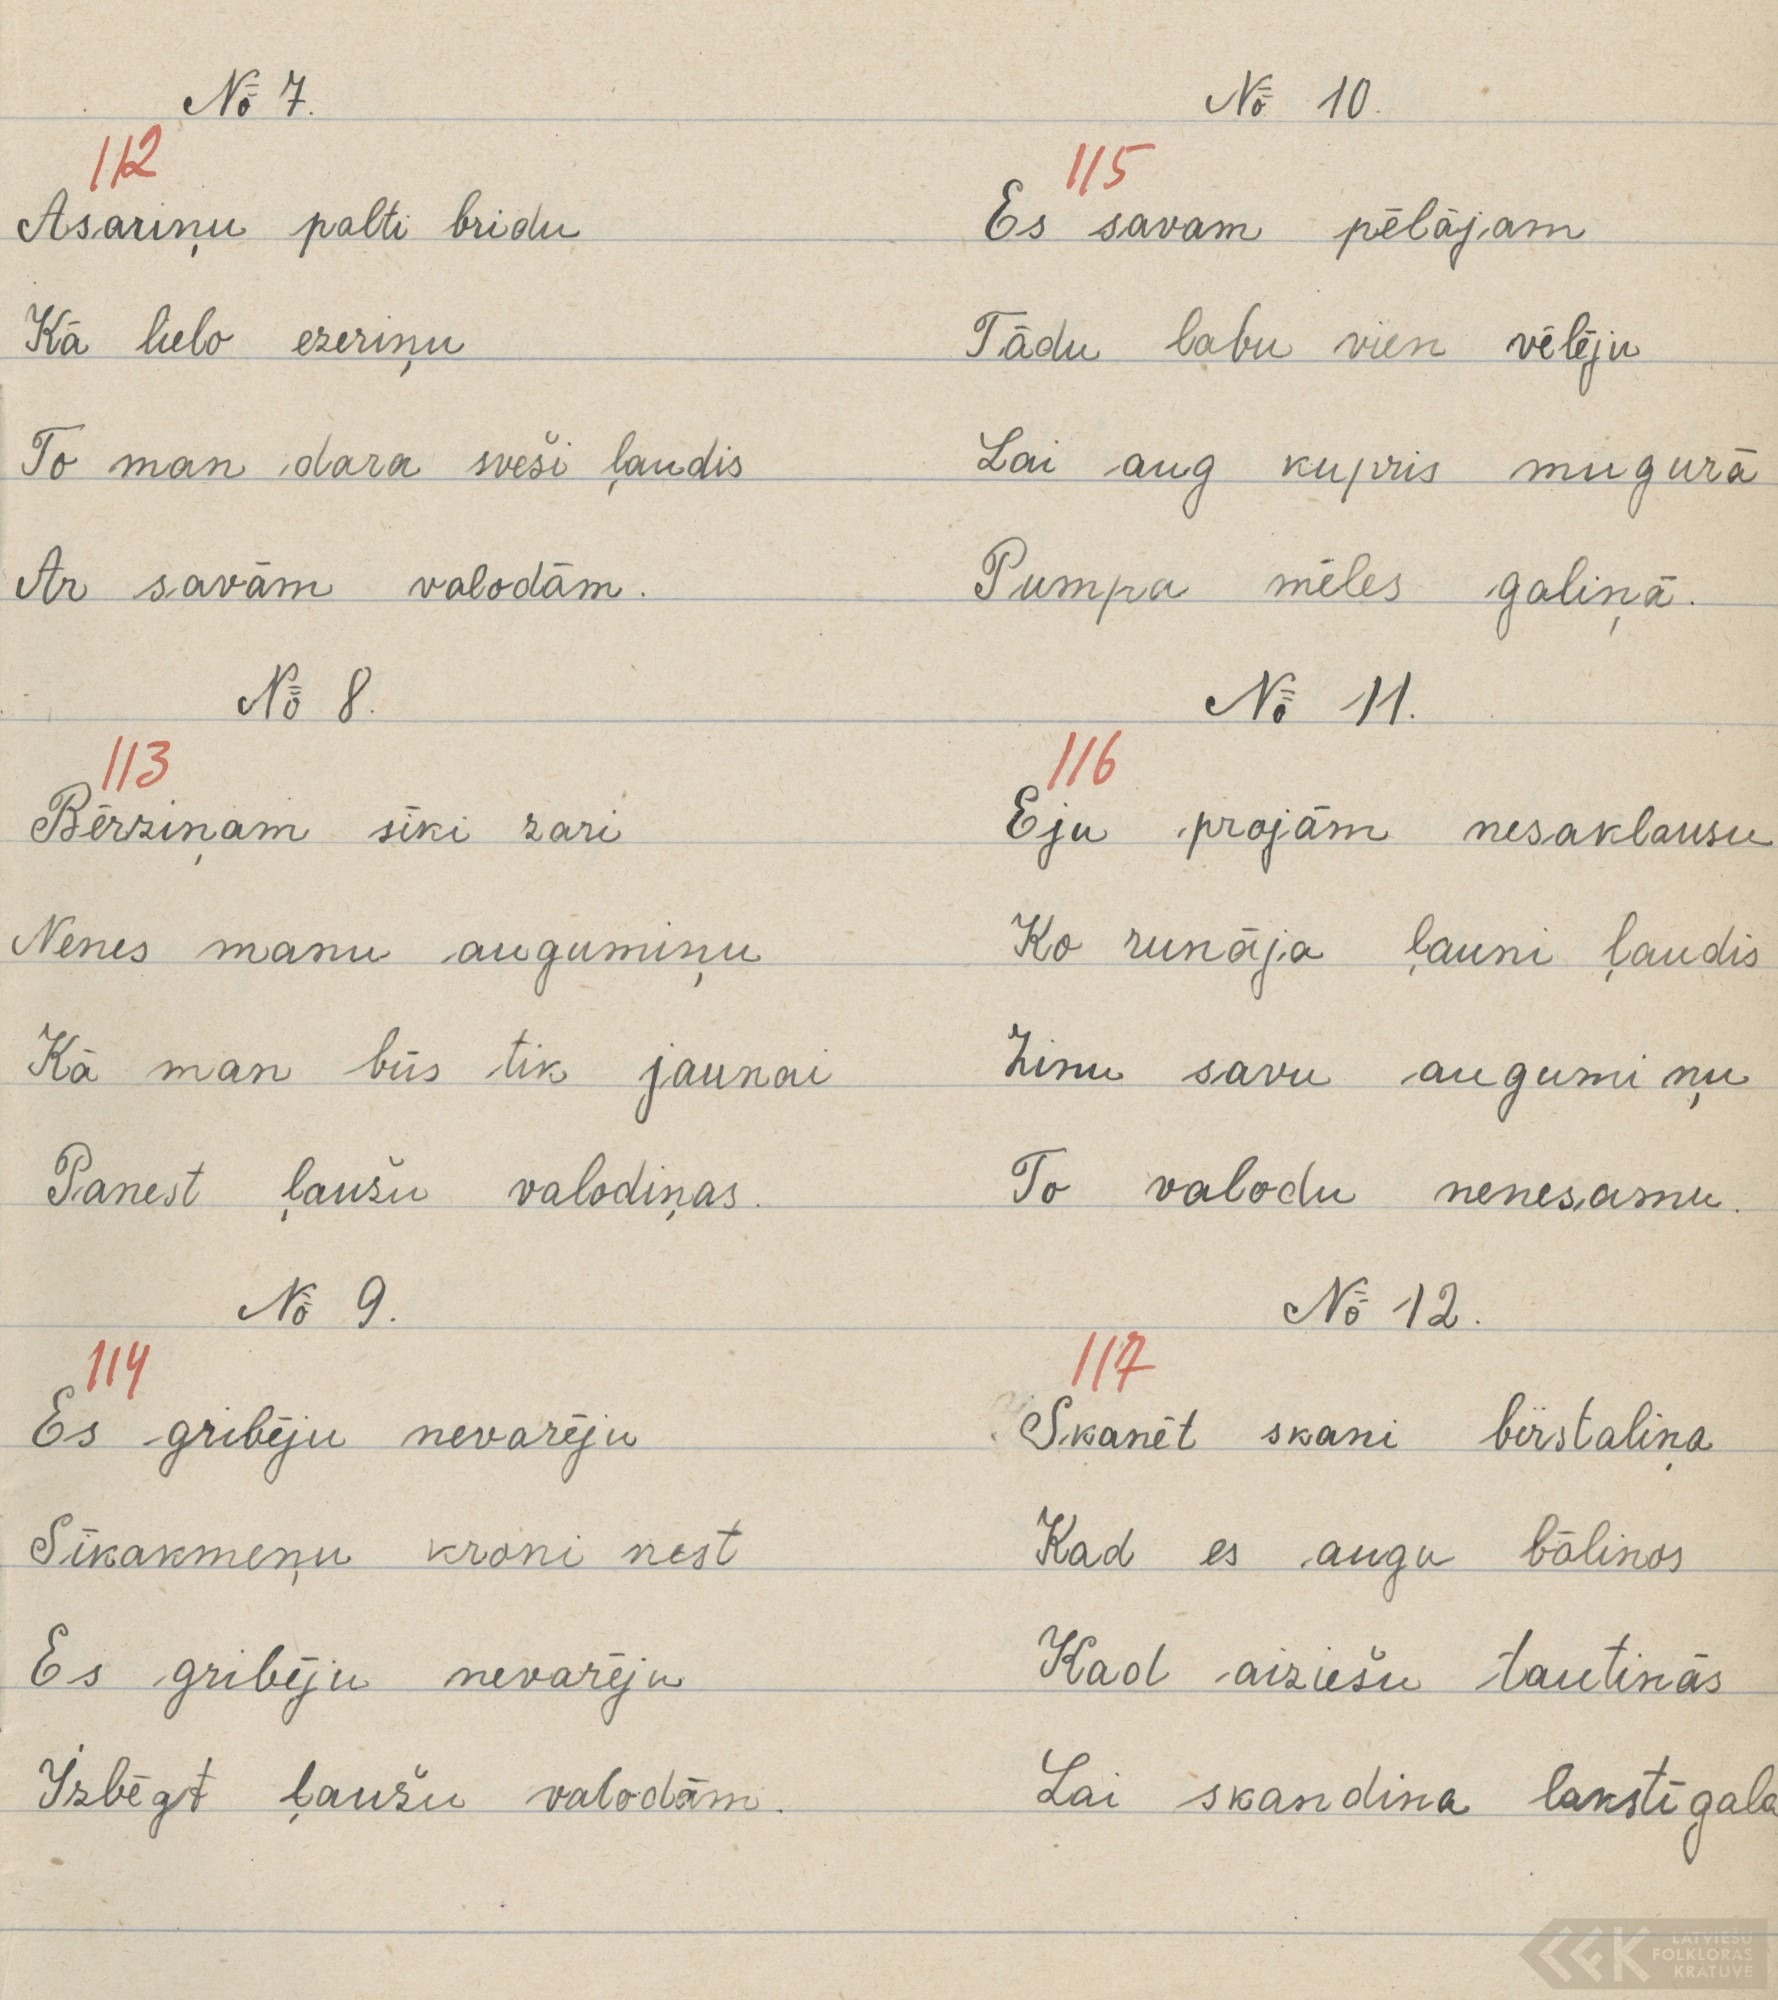 № 7.
112
Asariņu palti bridu
Kā lielo ezeriņu
To man dara sveši ļaudis
Ar savām valodām.
№ 8.
113
Bērziņam sīki zari
Nenes manu augumiņu
Kā man būs tik jaunai
Panest ļaužu valodiņas.
№ 9.
114
Es gribēju nevarēju
Sīkakmeņu kroni nest
Es gribēju nevarēju
Izbēgt ļaužu valodām.
№ 10.
115
Es savam pēlājam
Tādu labu vien vēlēju
Lai aug kupris mugurā
Pumpa mēles galiņā.
№ 11.
116
Eju projām nesaklausu
Ko runāja ļauni ļaudis
Zinu savu augumiņu
To valodu nenesamu.
№ 12.
117
Skanēt skani birstaliņa
Kad es augu bāliņos
Kad aiziešu tautinās
Lai skandina lakstīgala
LATVIEŠU
FOLKLORAS
KRĀTUVE